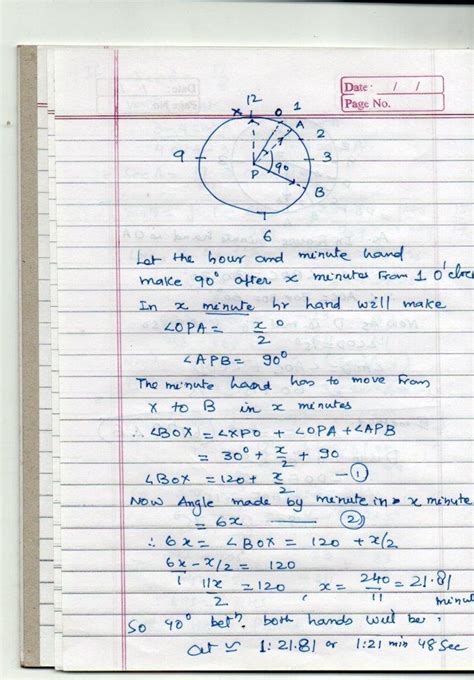 Date : / /
Page No.
12
X O 1
A
2
9 3
90
P
B
6
Let the hour and minute hand
make 90° after x minutes from 1 O'clock
In x minute hr hand will make
∠OPA = x/2 °
∠APB = 90°
The minute hand has to move from
X to B in x minutes
∴ ∠BOX = ∠XPO + ∠OPA + ∠APB
= 30° + x/2 + 90
∠BOX = 120 + x/2 — ①
Now Angle made by minute in x minute
= 6x — ②
∴ 6x = ∠BOX = 120 + x/2
6x/1 - x/2 = 120
11x/2 = 120 , x = 240/11 = 21.81
minut
So 90° betn. both hands will be,
at ≃ 1:21.81 or 1:21 min 48 Sec